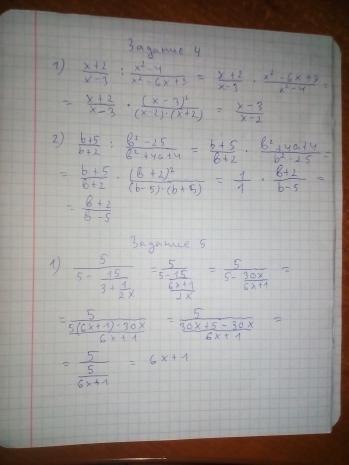 Задание 4
1) x+2/x-3 : x²-4/x²-6x+9 = x+2/x-3 · x²-6x+9/x²-4 =
= x+2/x-3 · (x-3)²/(x-2)·(x+2) = x-3/x-2
2) b+5/b+2 : b²-25/b²+4a+4 = b+5/b+2 · b²+4a+4/b²-25 =
= b+5/b+2 · (b+2)²/(b-5)·(b+5) = 1/1 · b+2/b-5 =
= b+2/b-5
Задание 5
1) 5/(5-15/(3+1/2x)) = 5/(5-15/(6x+1/2x)) = 5/(5-30x/6x+1) =
= 5/(5(6x+1)-30x/6x+1) = 5/(30x+5-30x/6x+1) =
= 5/(5/6x+1) = 6x+1